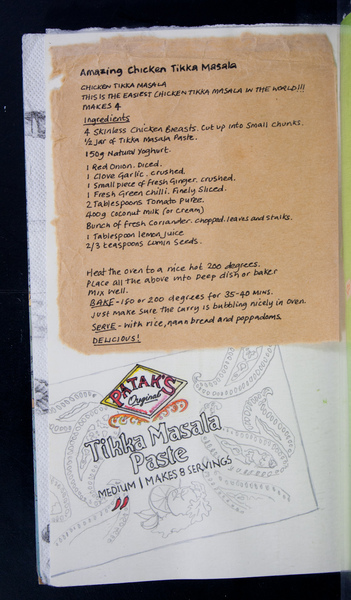 Amazing Chicken Tikka Masala
CHICKEN TIKKA MASALA
THIS IS THE EASIEST CHICKEN TIKKA MASALA IN THE WORLD!!!
MAKES 4
Ingredients
4 Skinless Chicken Breasts. Cut up into Small Chunks.
1/2 Jar of Tikka Masala Paste.
150g Natural Yoghurt.
1 Red Onion. Diced.
1 Clove Garlic. crushed.
1 Small piece of Fresh Ginger. crushed.
1 Fresh Green Chilli. Finely Sliced.
2 Tablespoons Tomato Puree.
400g Coconut Milk (or cream)
Bunch of Fresh Coriander. Chopped. leaves and stalks.
1 Tablespoon lemon juice
2/3 teaspoons Cumin Seeds.
Heat the oven to a nice hot 200 degrees.
Place all the above into Deep dish or baker
Mix well.
BAKE - 150 or 200 degrees for 35-40 MINS.
Just make sure the curry is bubbling nicely in oven.
SERVE - with rice, naan bread and poppadoms.
DELICIOUS!
PATAK'S
Original
Tikka Masala
Paste
MEDIUM | MAKES 8 SERVINGS